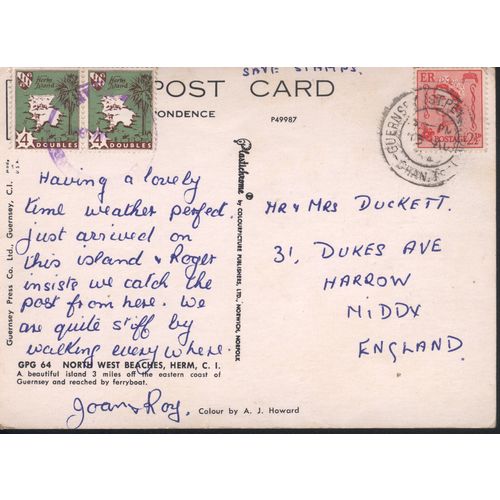 SAVE STAMPS.
POST CARD
PONDENCE
P49987
Herm Island
4 DOUBLES
Herm Island
4 DOUBLES
ER
POSTAGE
2½
GUERNSEY
CHAN.
Having a lovely
time weather perfect.
just arrived on
this island & Roger
insists we catch the
post from here. We
are quite stiff by
walking every where.
Joan & Roy.
GPG 64 NORTH WEST BEACHES, HERM, C. I.
A beautiful island 3 miles off the eastern coast of
Guernsey and reached by ferryboat.
Colour by A. J. Howard
Guernsey Press Co. Ltd., Guernsey, C.I.
U.S.A.
Plastichrome ® by COLOURPICTURE PUBLISHERS, LTD., NORWICH, NORFOLK
MR & MRS DUCKETT.
31, DUKES AVE
HARROW
MIDDX
ENGLAND.